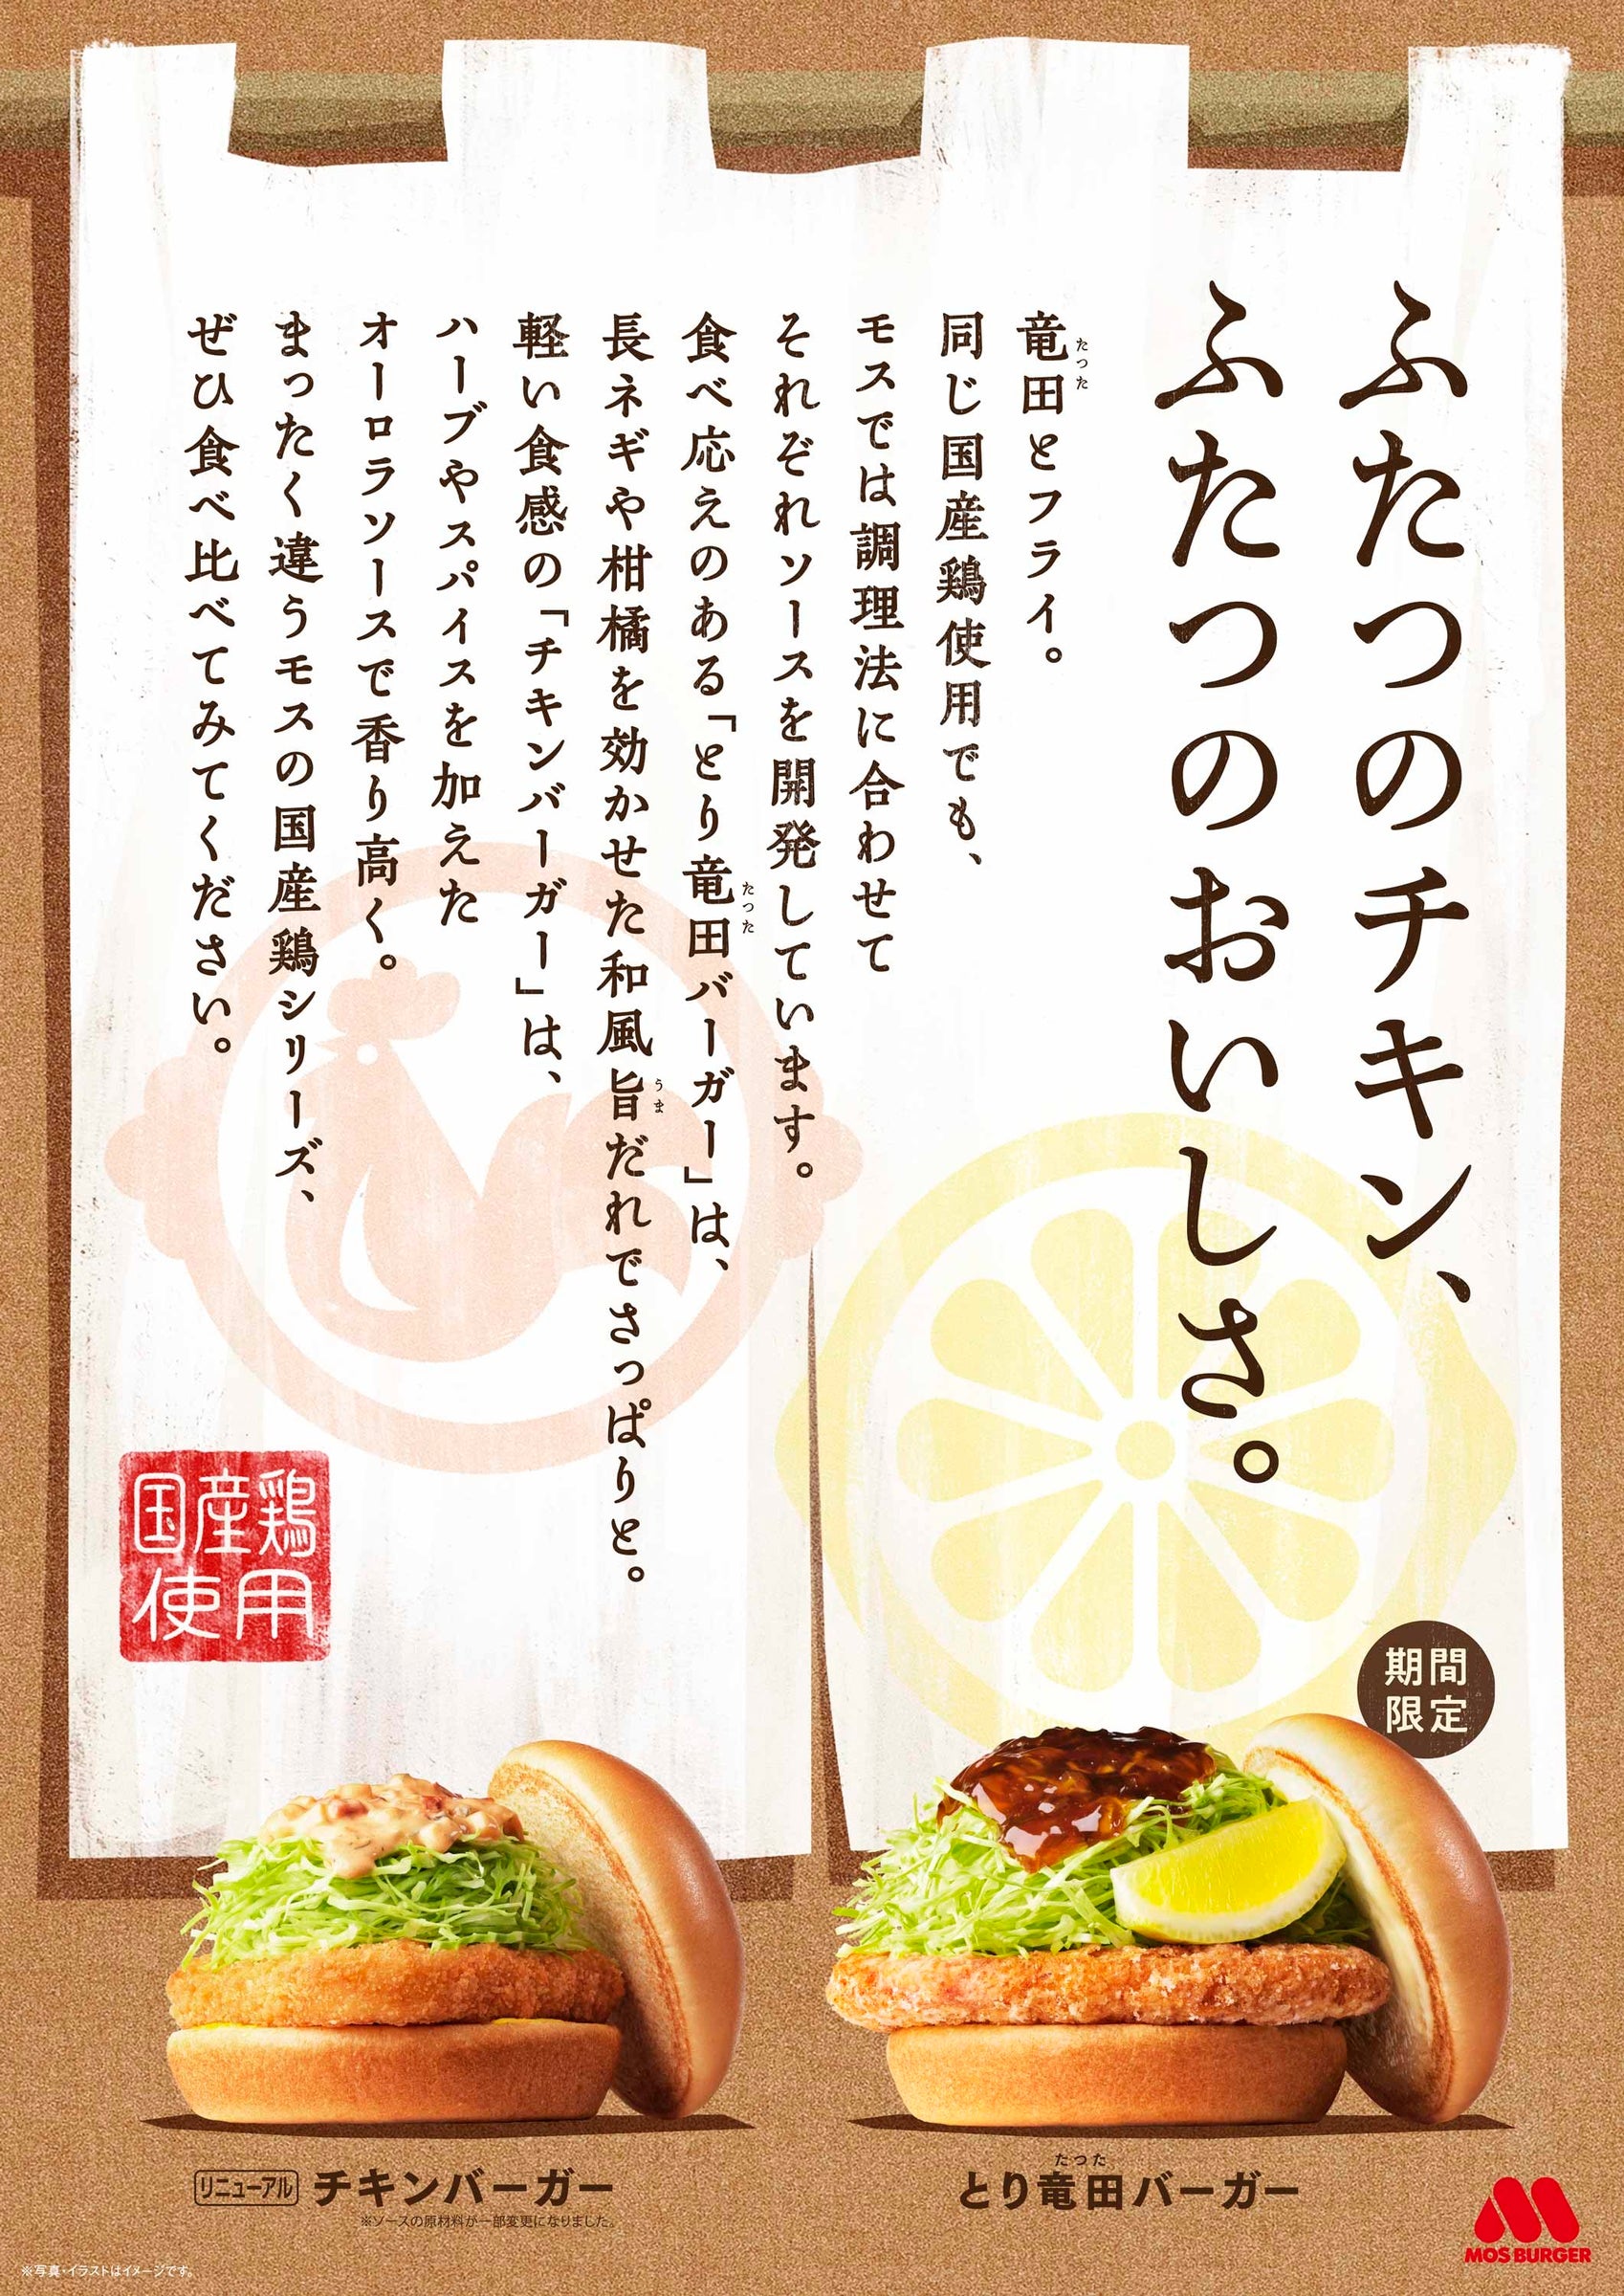 ふたつのチキン、
ふたつのおいしさ。
竜田とフライ。
たった
同じ国産鶏使用でも、
モスでは調理法に合わせて
それぞれソースを開発しています。
食べ応えのある「とり竜田バーガー」は、
たつた
長ネギや柑橘を効かせた和風旨だれでさっぱりと。
うま
軽い食感の「チキンバーガー」は、
ハーブやスパイスを加えた
オーロラソースで香り高く。
まったく違うモスの国産鶏シリーズ、
ぜひ食べ比べてみてください。
国産鶏
使用
期間
限定
リニューアル チキンバーガー
※ソースの原材料が一部変更になりました。
たつた
とり竜田バーガー
MOS BURGER
※写真・イラストはイメージです。